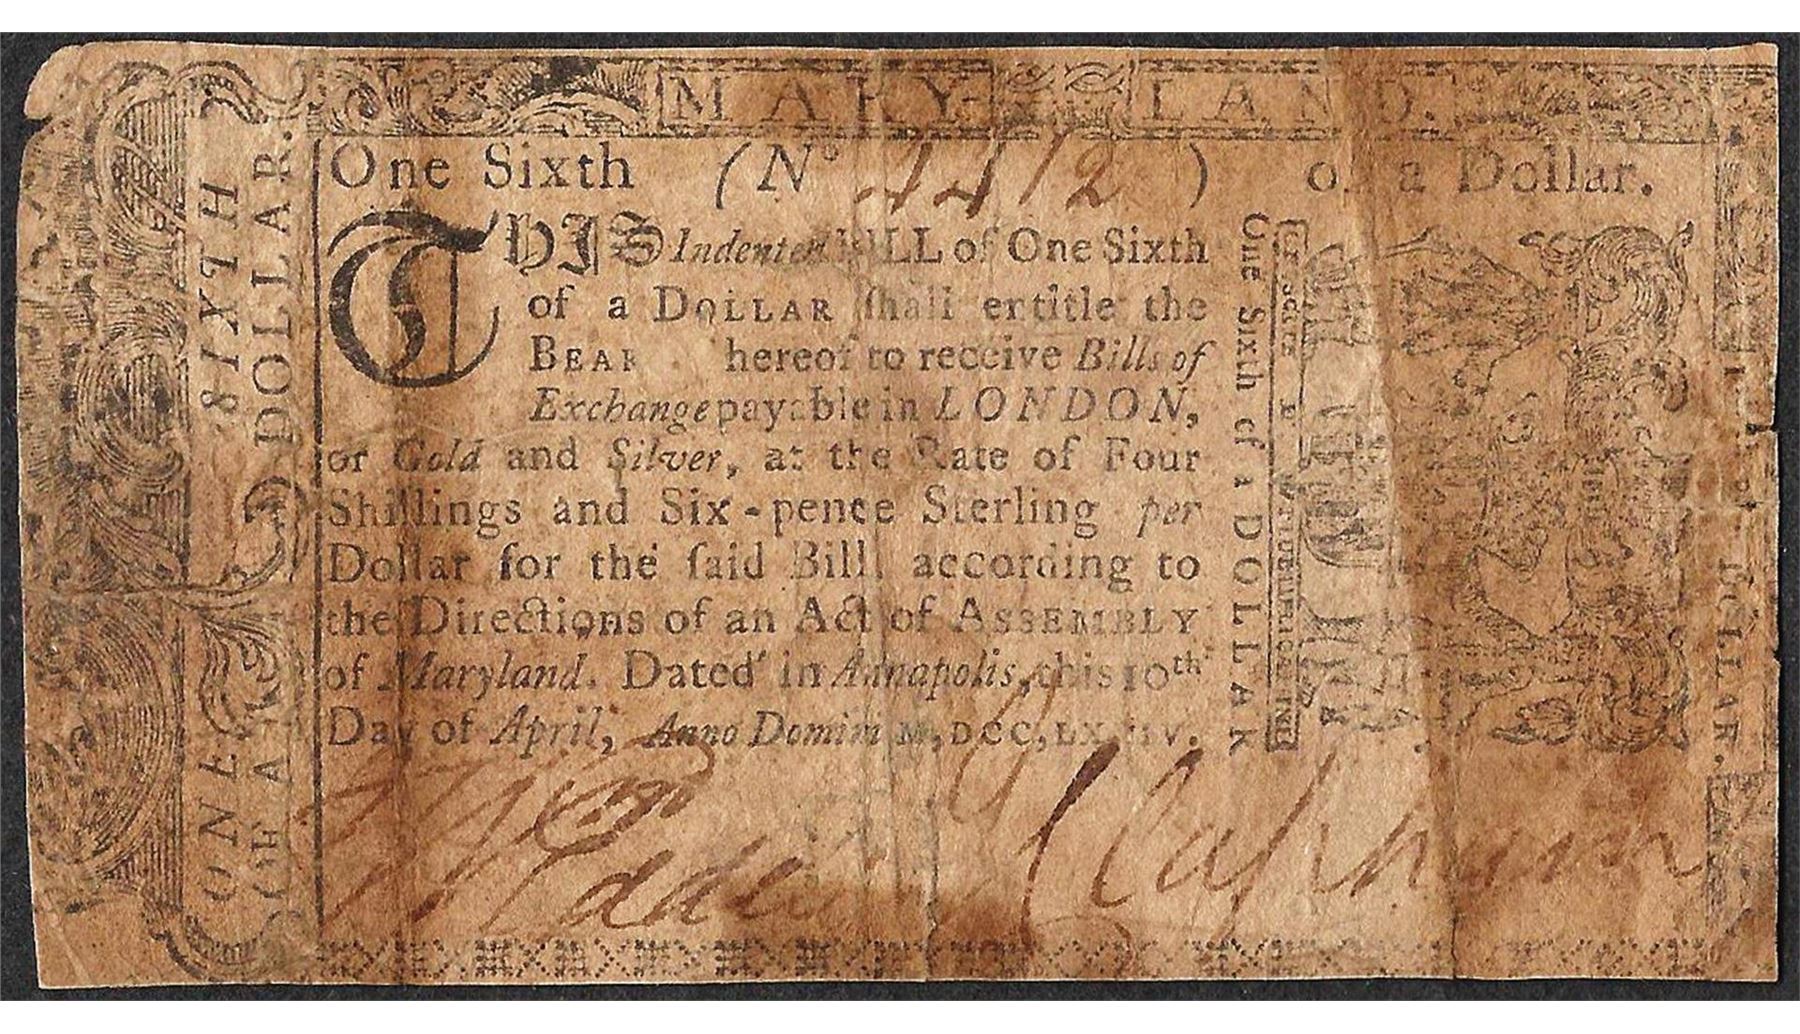 MARY- LAND.
One Sixth (No 4412) of a Dollar.
THIS Indented BILL of One Sixth
of a DOLLAR ſhall entitle the
BEAR hereof to receive Bills of
Exchange payable in LONDON,
or Gold and Silver, at the Rate of Four
Shillings and Six-pence Sterling per
Dollar for the ſaid Bill, according to
the Directions of an Act of ASSEMBLY
of Maryland. Dated in Annapolis, this 10th
Day of April, Anno Domini M,DCC,LXXIV.
Clapham
ONE SIXTH
OF A DOLLAR.
One Sixth of a DOLLAR
DOLLAR.